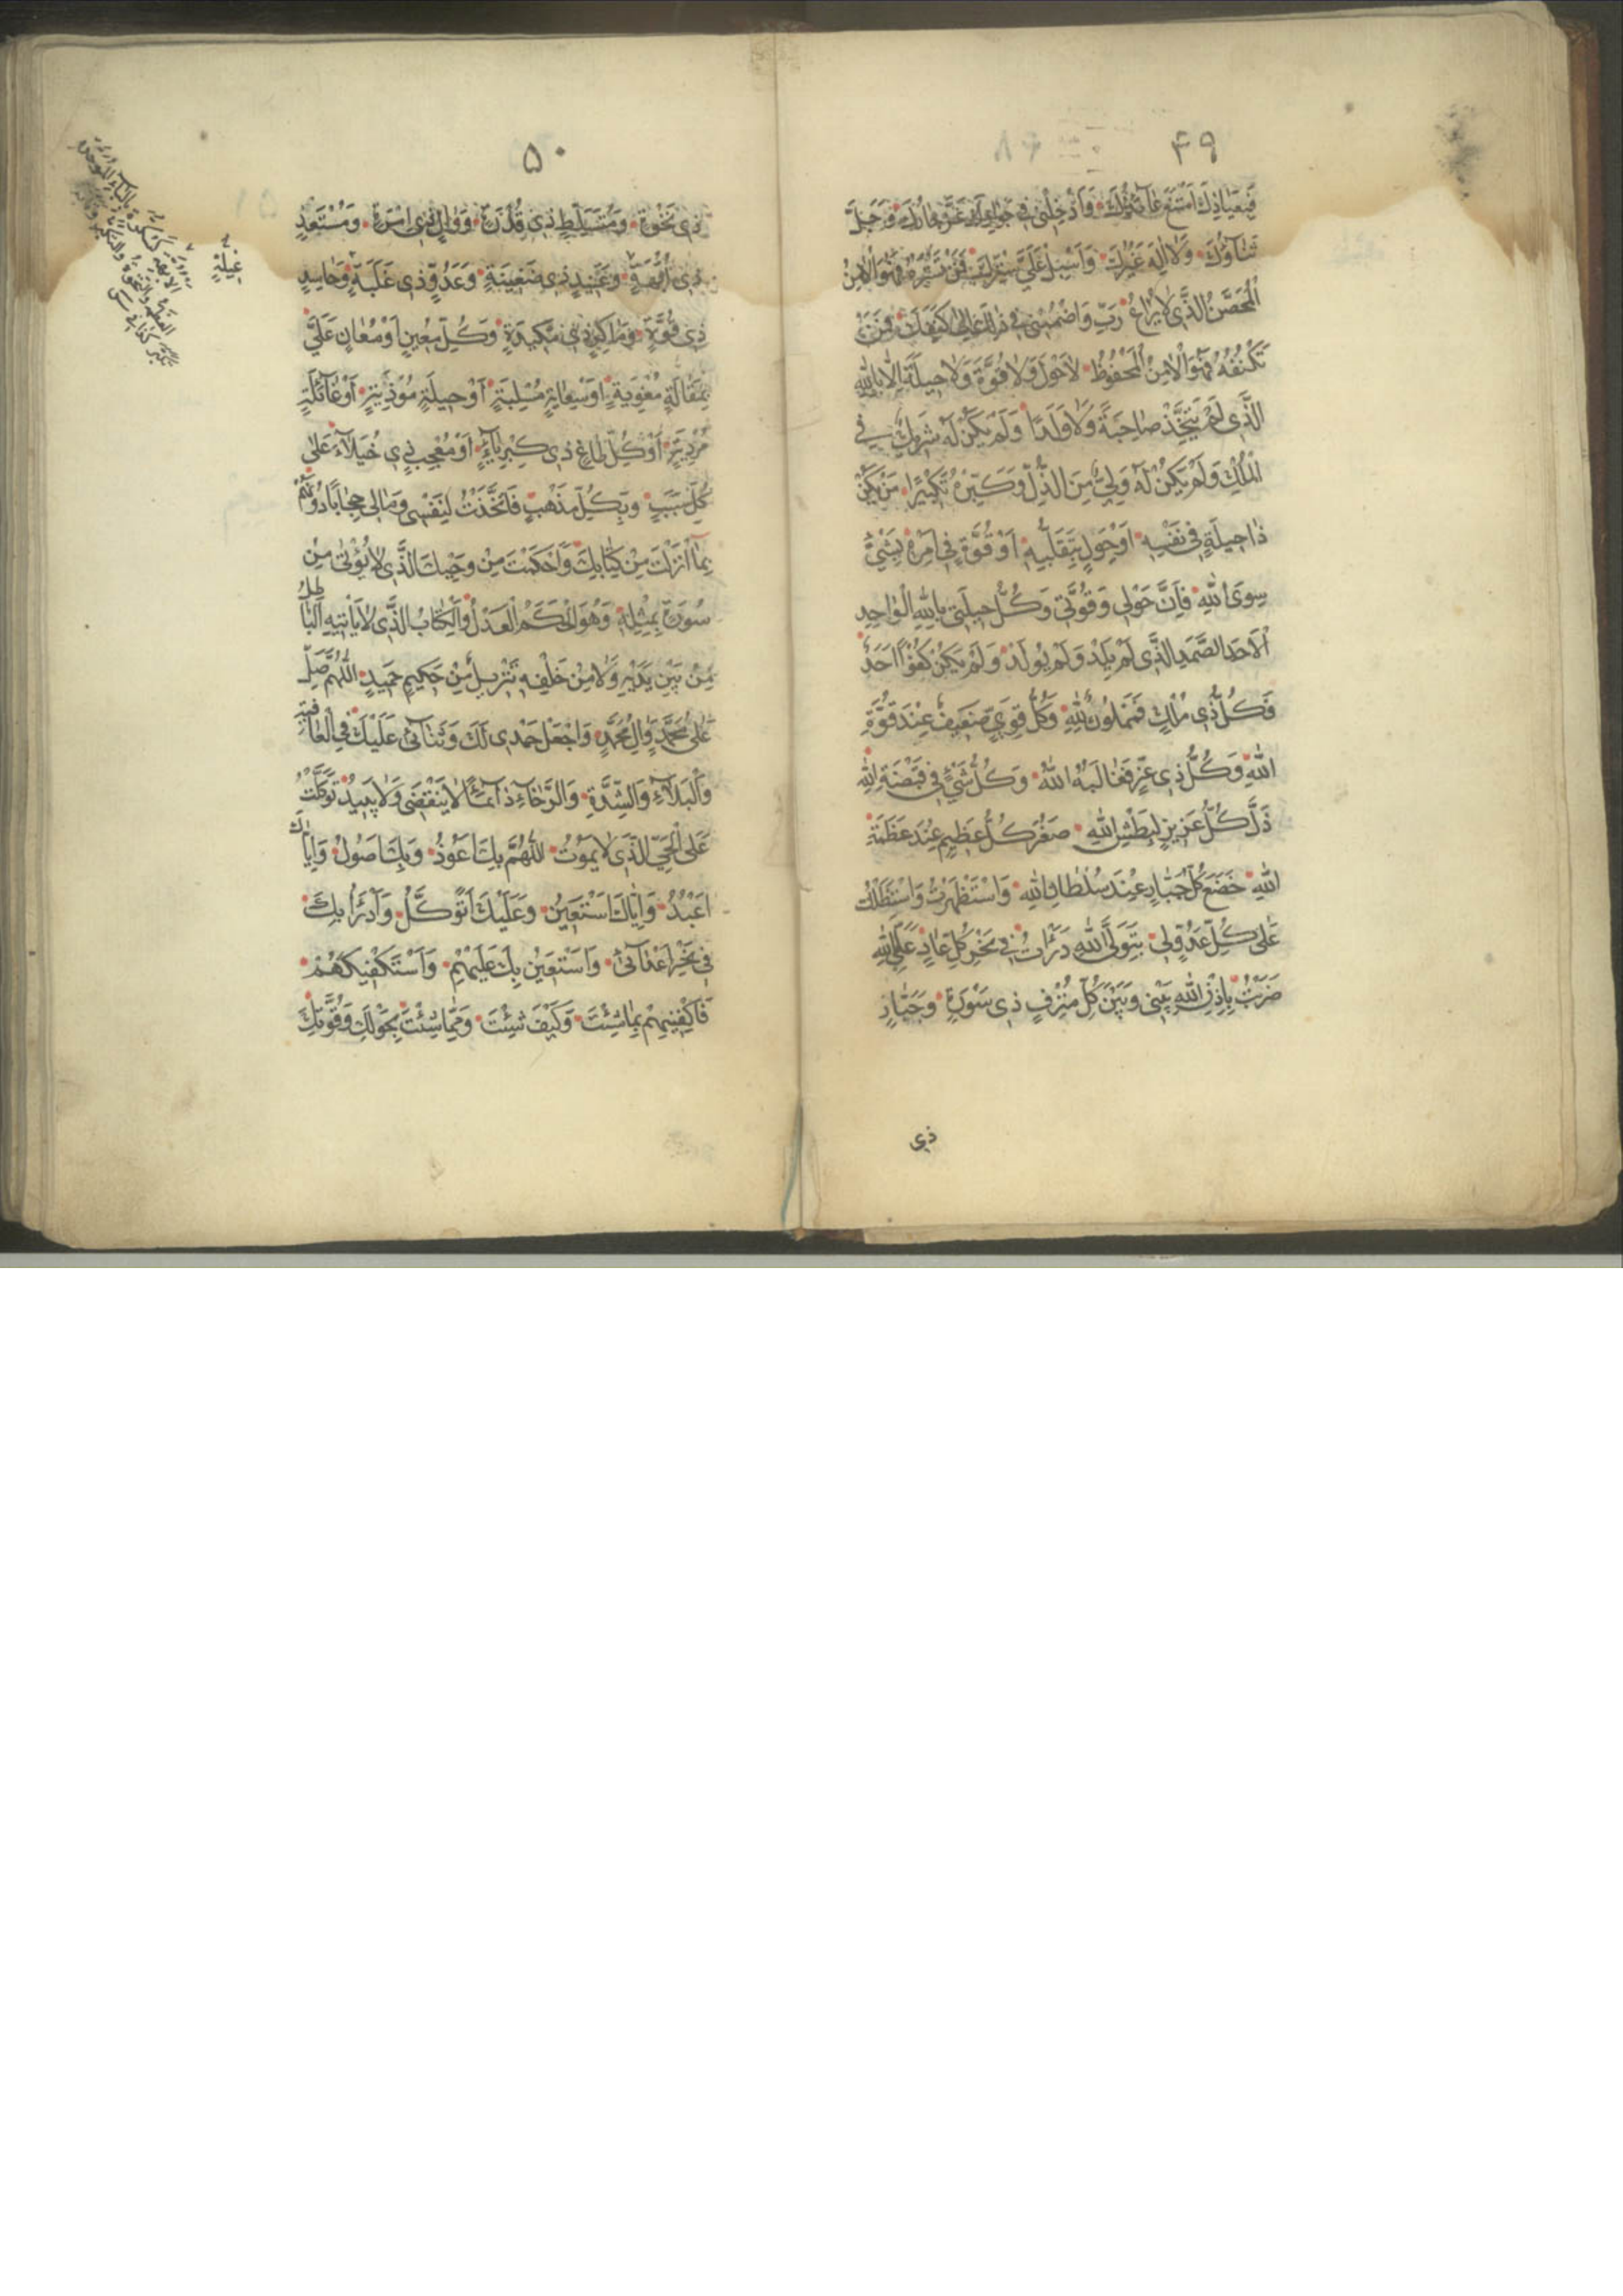 ۴۹
فَبِعِيَاذِكَ امْتَنَعَ عَآئِذُكَ وَاَدْخِلْنِى فِى جِوَارِكَ عَزَّ جَارُكَ وَجَلَّ
ثَنَآؤُكَ وَلَا اِلٰهَ غَيْرُكَ وَاَسْبِلْ عَلَىَّ سِتْرَكَ فَمَنْ تَسْتُرْهُ فَهُوَ الْاٰمِنُ
الْمُحَصَّنُ الَّذِى لَا يُرَاعُ رَبِّ وَاضْمُمْنِى فِى ذٰلِكَ اِلىٰ كَنَفِكَ فَمَنْ
تَكْنُفُهُ فَهُوَ الْاٰمِنُ الْمَحْفُوظُ لَا حَوْلَ وَلَا قُوَّةَ وَلَا حِيلَةَ اِلَّا بِاللهِ
الَّذِى لَمْ يَتَّخِذْ صَاحِبَةً وَلَا وَلَدًا وَلَمْ يَكُنْ لَهُ شَرِيكٌ فِى
الْمُلْكِ وَلَمْ يَكُنْ لَهُ وَلِىٌّ مِنَ الذُّلِّ وَكَبِّرْهُ تَكْبِيرًا مَنْ يَكُنْ
ذَا حِيلَةٍ فِى نَفْسِهِ اَوْ حَوْلٍ بِتَقَلُّبِهِ اَوْ قُوَّةٍ فِى اَمْرِهِ بِشَىْءٍ
سِوَى اللهِ فَاِنَّ حَوْلِى وَقُوَّتِى وَكُلَّ حِيلَتِى بِاللهِ الْوَاحِدِ
الْاَحَدِ الصَّمَدِ الَّذِى لَمْ يَلِدْ وَلَمْ يُولَدْ وَلَمْ يَكُنْ لَهُ كُفُوًا اَحَدٌ
فَكُلُّ ذِى مُلْكٍ فَمَمْلُوكٌ لِلّٰهِ وَكُلُّ قَوِىٍّ ضَعِيفٌ عِنْدَ قُوَّةِ
اللهِ وَكُلُّ ذِى عِزٍّ فَغَالَبَهُ اللهُ وَكُلُّ شَىْءٍ فِى قَبْضَةِ اللهِ
ذَلَّ كُلُّ عَزِيزٍ لِبَطْشِ اللهِ صَغُرَ كُلُّ عَظِيمٍ عِنْدَ عَظَمَةِ
اللهِ خَضَعَ كُلُّ جَبَّارٍ عِنْدَ سُلْطَانِ اللهِ وَاسْتَظْهَرْتُ وَاسْتَطَلْتُ
عَلىٰ كُلِّ عَدُوٍّ لِى بِتَوَلِّى اللهِ دَرَأْتُ فِى نَحْرِ كُلِّ عَادٍ عَلَىَّ بِاللهِ
ضَرَبْتُ بِاِذْنِ اللهِ بَيْنِى وَبَيْنَ كُلِّ مُتْرَفٍ ذِى سَوْرَةٍ وَجَبَّارٍ
ذى
۵۰
ذِى نَخْوَةٍ وَمُتَسَلِّطٍ ذِى قُدْرَةٍ وَوَالٍ ذِى اِمْرَةٍ وَمُسْتَعِدٍّ
ذِى اُبَّهَةٍ وَعَنِيدٍ ذِى ضَغِينَةٍ وَعَدُوٍّ ذِى غَلَبَةٍ وَحَاسِدٍ
ذِى قُوَّةٍ وَمَاكِرٍ ذِى مَكِيدَةٍ وَكُلِّ مُعِينٍ اَوْ مُعَانٍ عَلَىَّ
بِمَقَالَةٍ مُغْوِيَةٍ اَوْ سِعَايَةٍ مُسْلِبَةٍ اَوْ حِيلَةٍ مُؤْذِيَةٍ اَوْ غَآئِلَةٍ
مُرْدِيَةٍ اَوْ كُلِّ طَاغٍ ذِى كِبْرِيَآءٍ اَوْ مُعْجِبٍ ذِى خُيَلَآءَ عَلىٰ
كُلِّ سَبَبٍ وَبِكُلِّ مَذْهَبٍ فَاَتَّخَذْتُ لِنَفْسِى وَمَالِى حِجَابًا دُونَهُمْ
بِمَا اَنْزَلْتَ مِنْ كِتَابِكَ وَاَحْكَمْتَ مِنْ وَحْيِكَ الَّذِى لَا يُؤْتىٰ مِنْ
سُورَةٍ بِمِثْلِهِ وَهُوَ الْحَكَمُ الْعَدْلُ وَالْكِتَابُ الَّذِى لَا يَأْتِيهِ الْبَاطِلُ
مِنْ بَيْنِ يَدَيْهِ وَلَا مِنْ خَلْفِهِ تَنْزِيلٌ مِنْ حَكِيمٍ حَمِيدٍ اَللّٰهُمَّ صَلِّ
عَلىٰ مُحَمَّدٍ وَاٰلِ مُحَمَّدٍ وَاجْعَلْ حَمْدِى لَكَ وَثَنَآئِى عَلَيْكَ فِى الْعَافِيَةِ
وَالْبَلَآءِ وَالشِّدَّةِ وَالرَّخَآءِ دَآئِمًا لَا يَنْقَضِى وَلَا يَبِيدُ تَوَكَّلْتُ
عَلَى الْحَىِّ الَّذِى لَا يَمُوتُ اَللّٰهُمَّ بِكَ اَعُوذُ وَبِكَ اَصُولُ وَاِيَّاكَ
اَعْبُدُ وَاِيَّاكَ اَسْتَعِينُ وَعَلَيْكَ اَتَوَكَّلُ وَاَدْرَأُ بِكَ
فِى نَحْرِ اَعْدَآئِى وَاَسْتَعِينُ بِكَ عَلَيْهِمْ وَاَسْتَكْفِيكَهُمْ
فَاكْفِنِيهِمْ بِمَا شِئْتَ وَكَيْفَ شِئْتَ وَمِمَّا شِئْتَ بِحَوْلِكَ وَقُوَّتِكَ
غِيلَةٍ